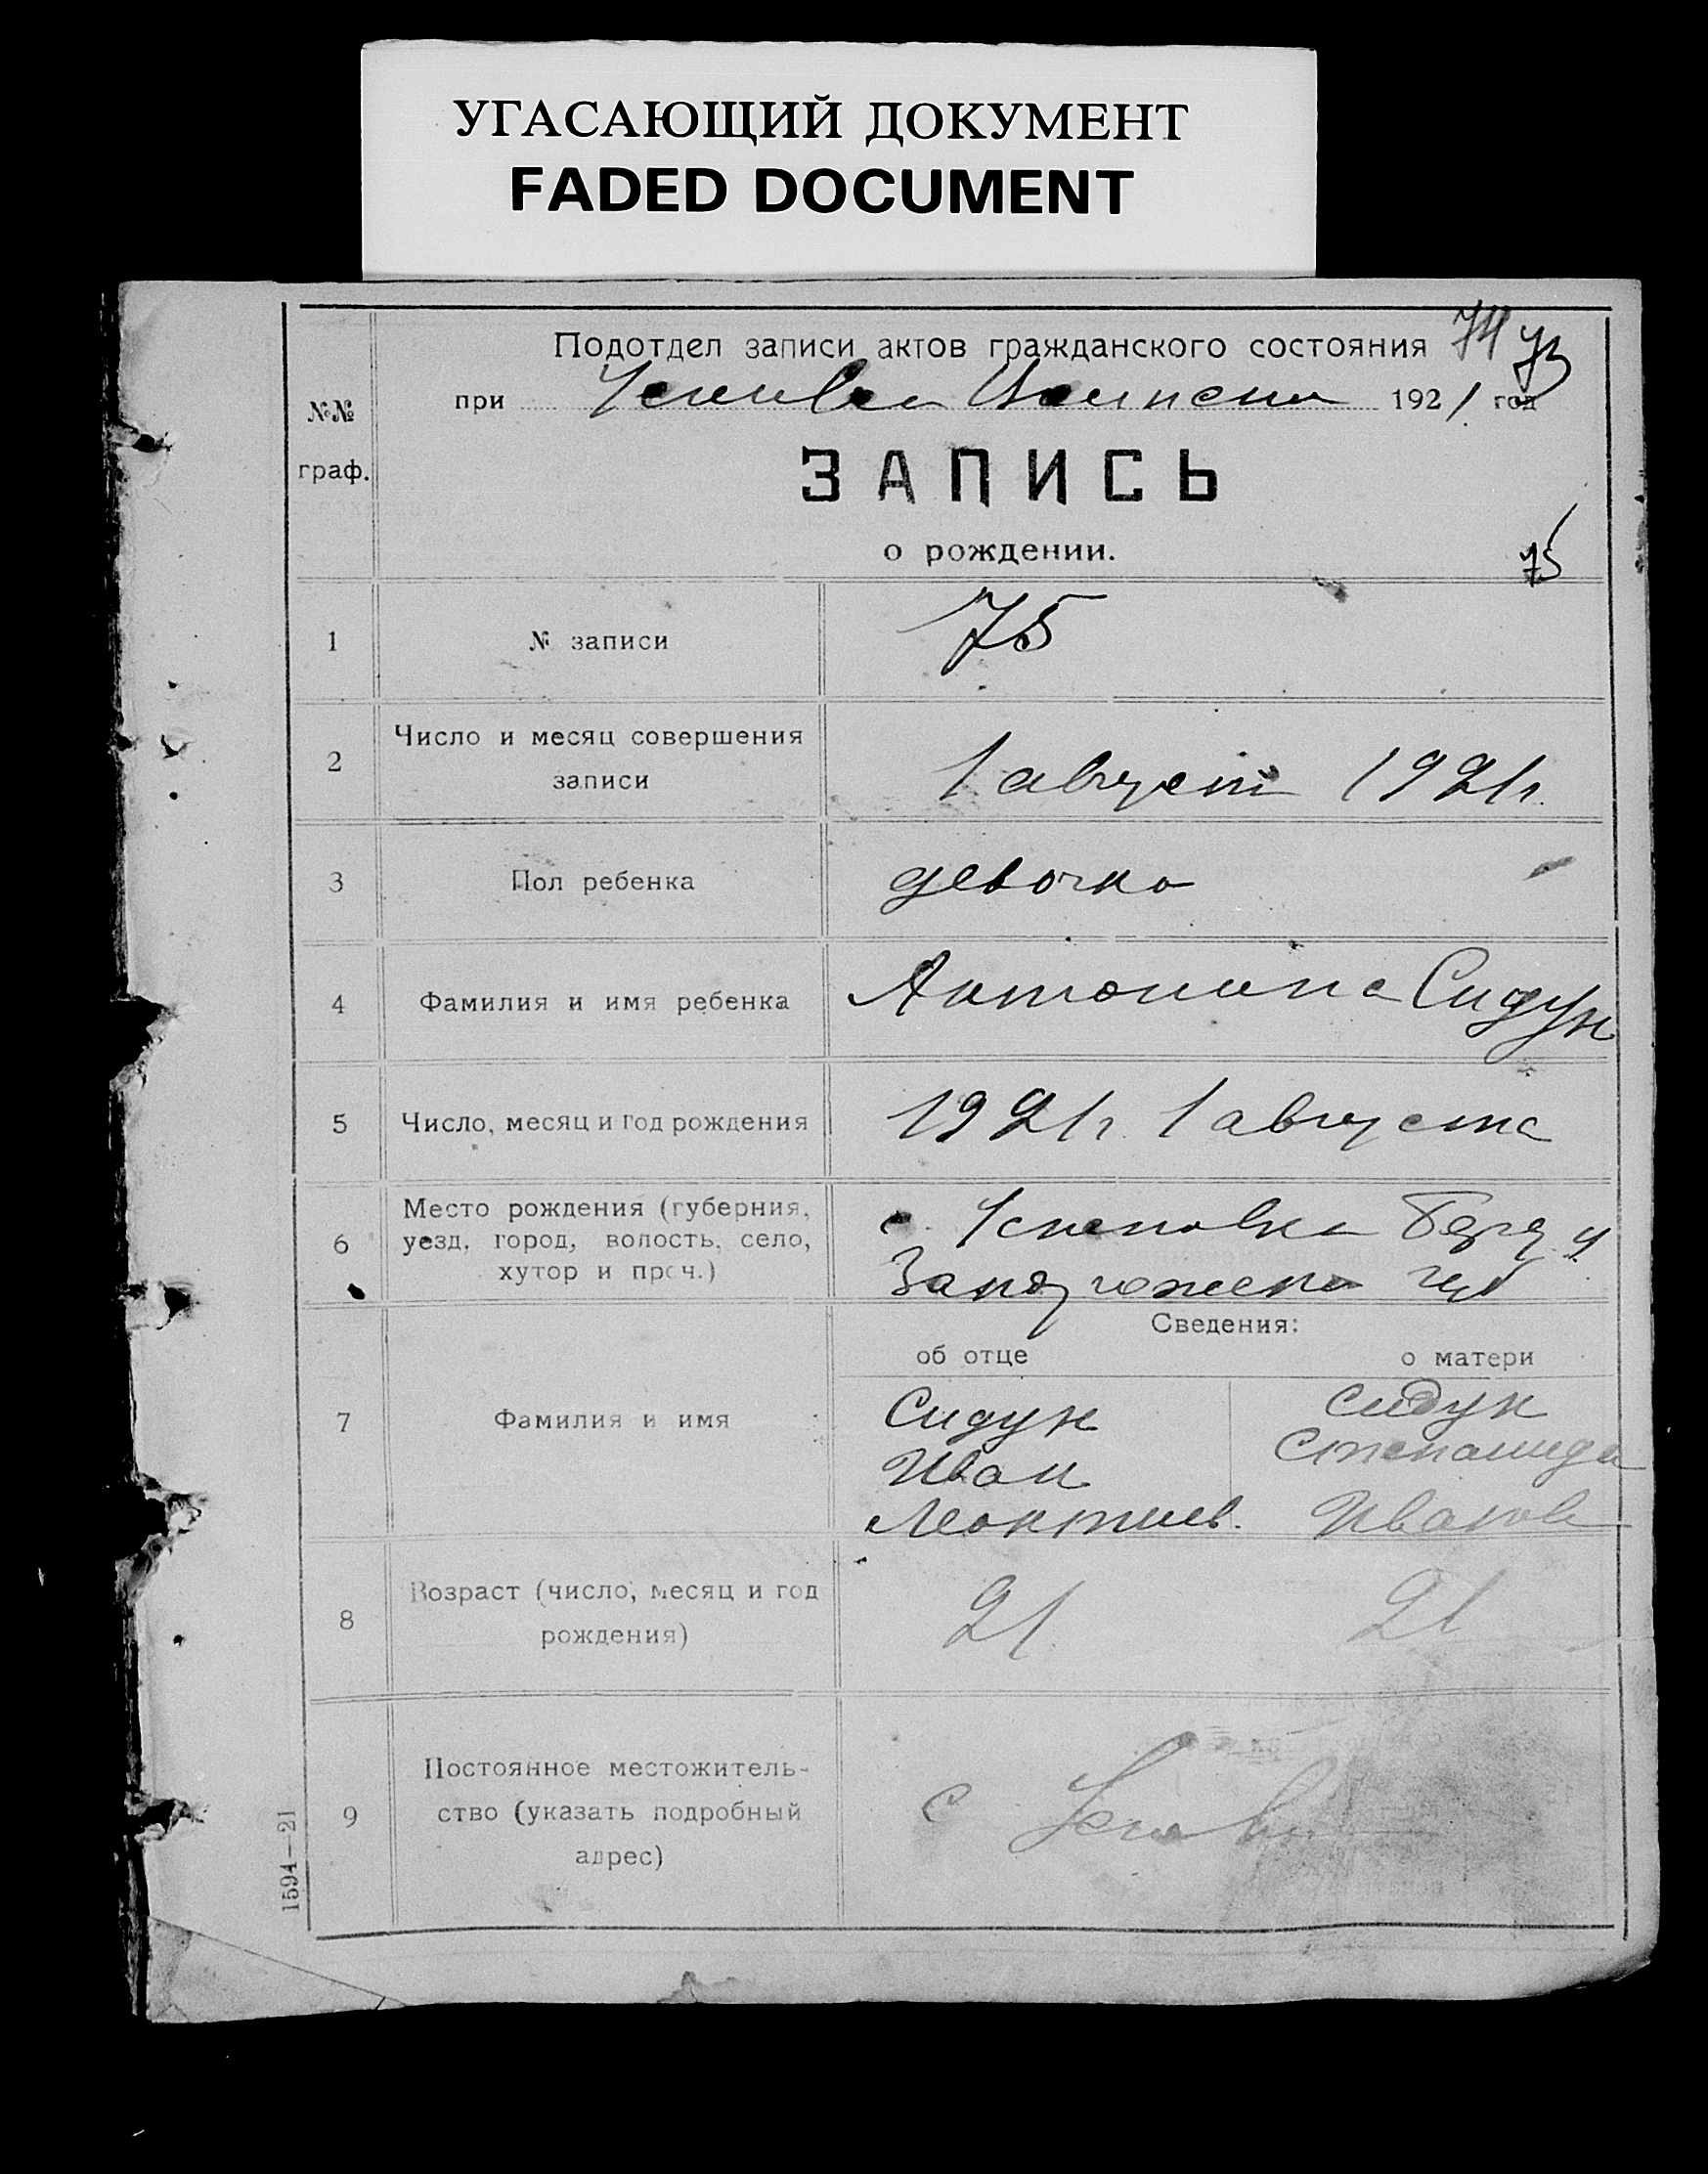 УГАСАЮЩИЙ ДОКУМЕНТ
FADED DOCUMENT
Подотдел записи актов гражданского состояния 74 73
при 1921 год
№№
граф.
ЗАПИСЬ
о рождении.
75
1 № записи 75
2 Число и месяц совершения
записи 1 август 1921 г.
3 Пол ребенка девочка
4 Фамилия и имя ребенка Антонина Сидун
5 Число, месяц и год рождения 1921 г. 1 августа
6 Место рождения (губерния,
уезд, город, волость, село,
хутор и проч.)
с. Берд. у.
губ
Сведения:
об отце о матери
7 Фамилия и имя
Сидун Сидун
Иван
Леонтиев. Иванов
8 Возраст (число, месяц и год
рождения) 21 21
9 Постоянное местожитель-
ство (указать подробный
адрес)
с
1594—21